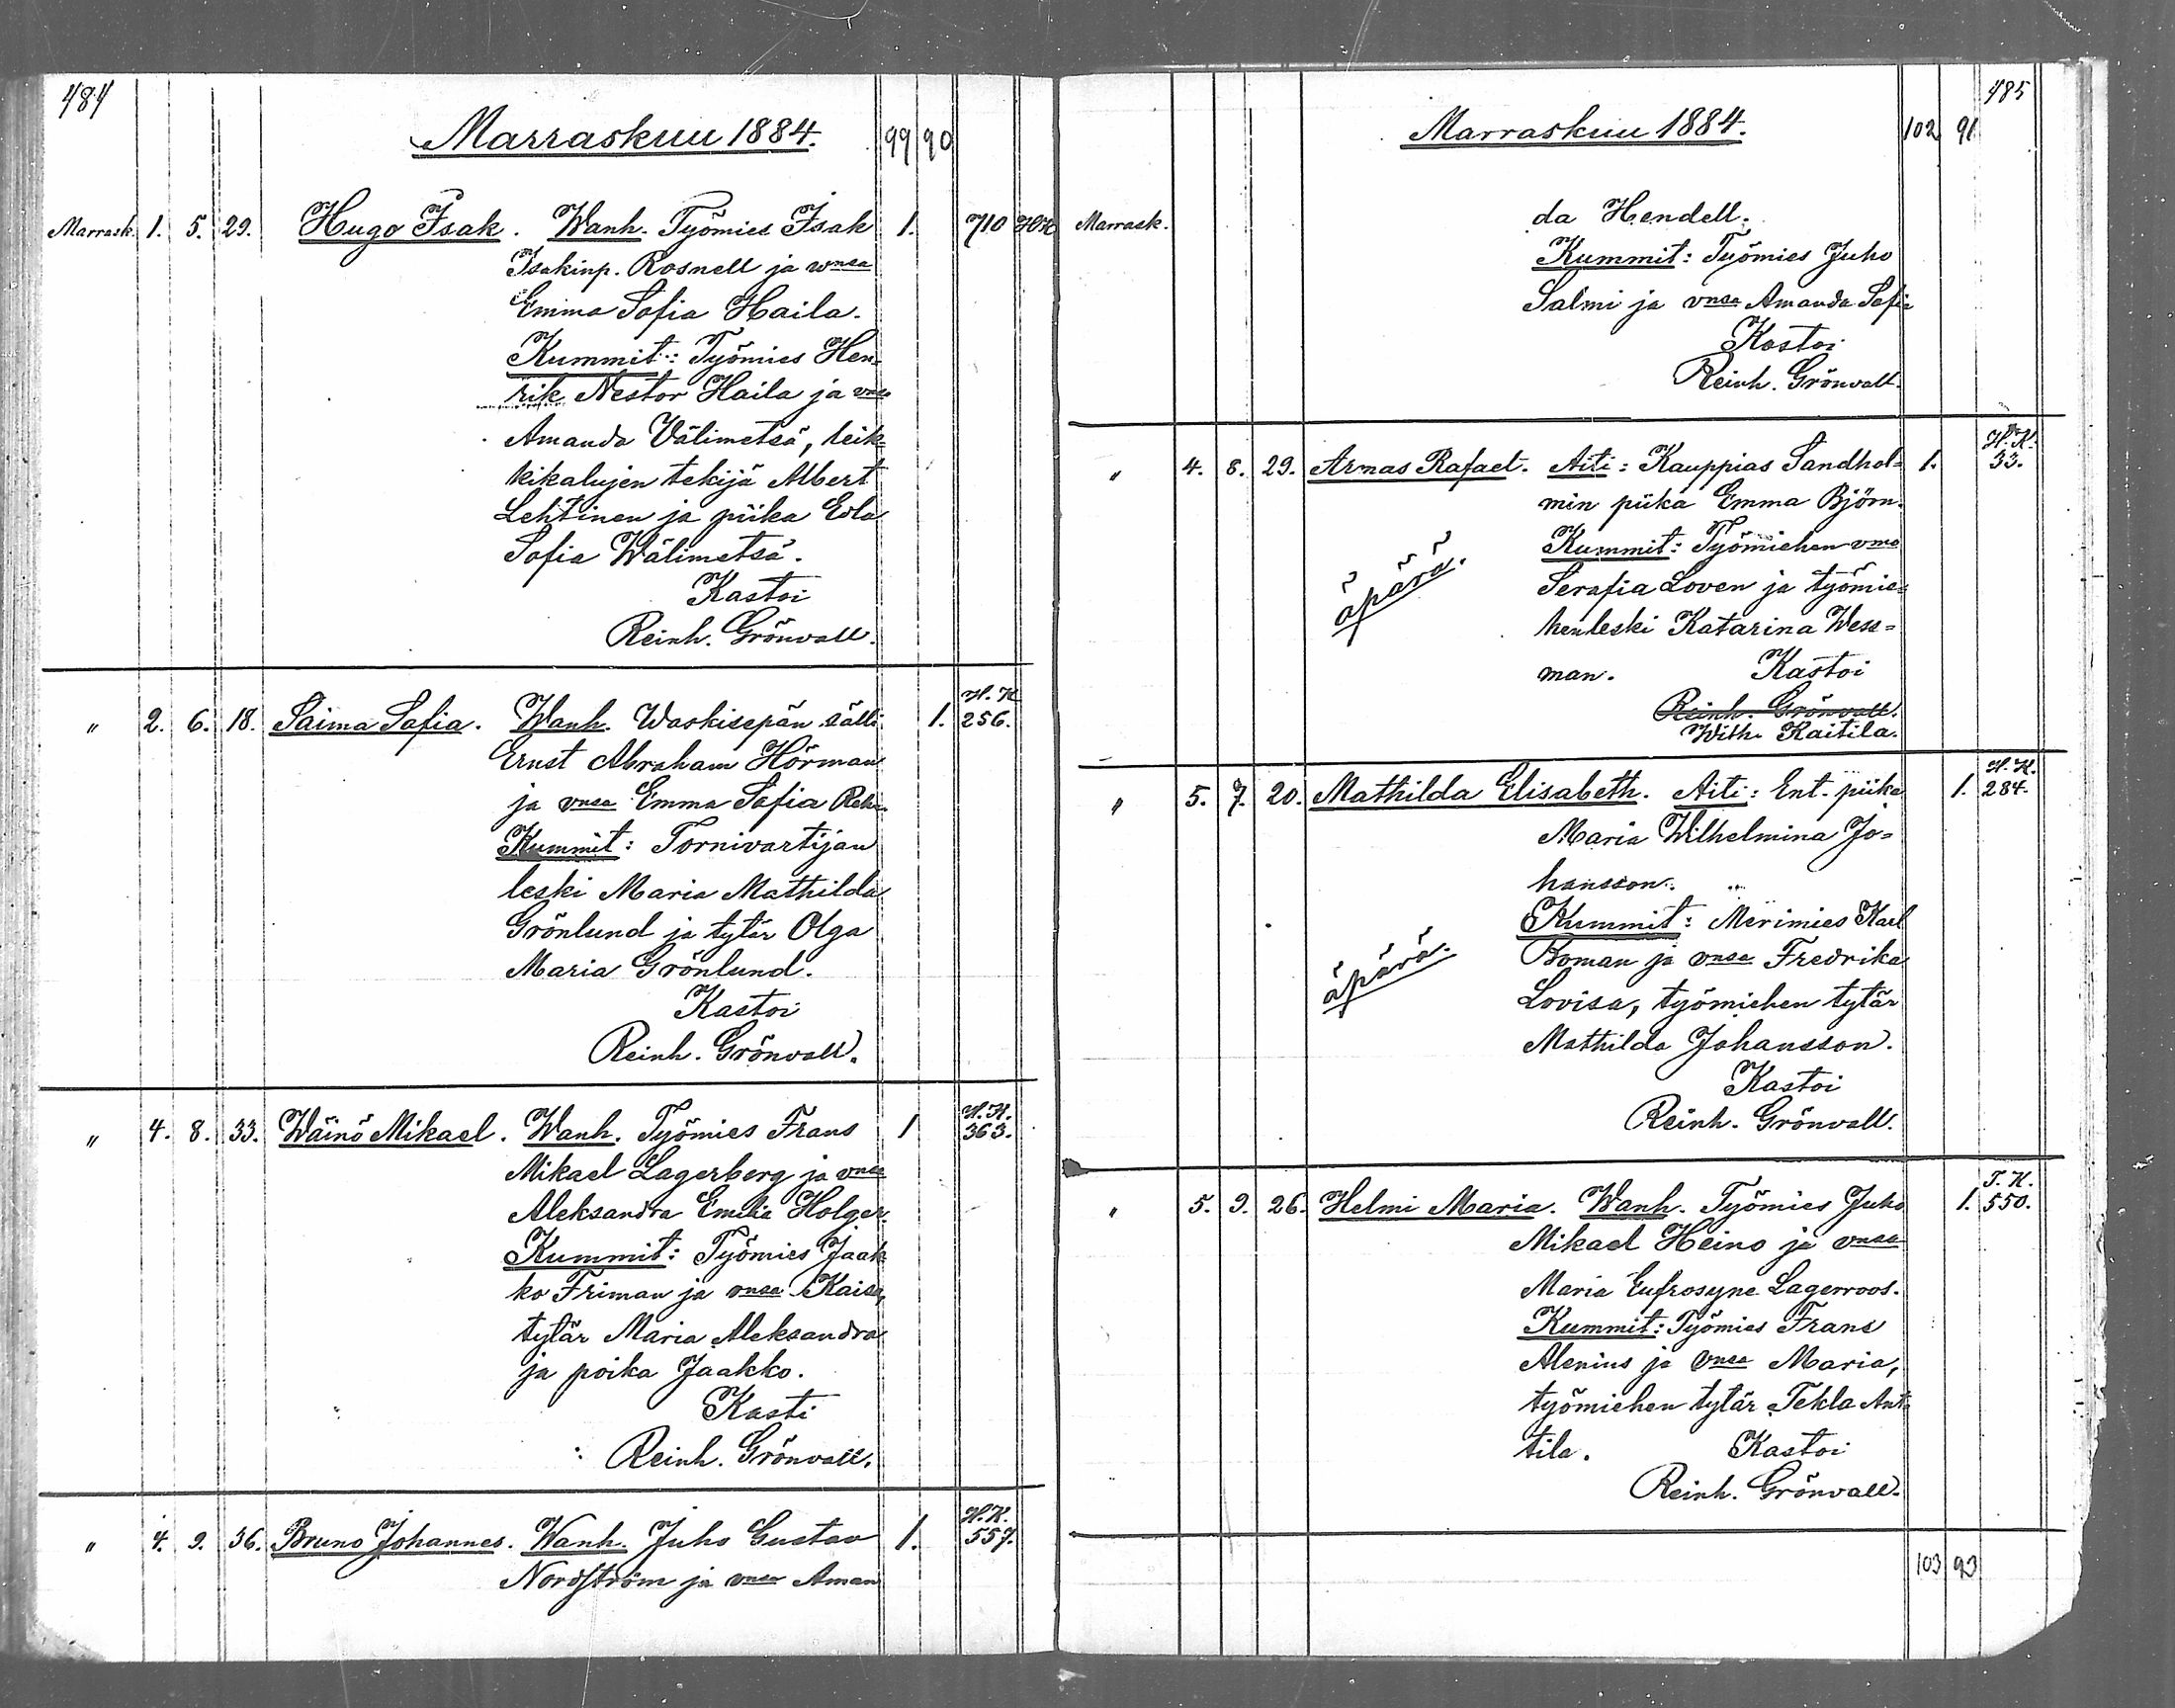 484
Marraskuu 1884. 99 90
Marrask. 1. 5. 29. Hugo Isak. Wanh. Työmies Isak 1. 710
Isakinp. Rosnell ja wnsa
Emma Sofia Haila.
Kummit: Työmies Hen-
rik Nestor Haila ja vnsa
Amanda Välimetsä, leik-
kikalujen tekijä Albert
Lehtinen ja piika Edla
Sofia Wälimetsä.
Kastoi
Reinh. Grönvall.
H. K.
" 2. 6. 18. Saima Sofia. Wanh. Waskisepän sälli 1. 256.
Ernst Abraham Hörman
ja vnsa Emma Sofia
Kummit: Tornivartijan
leski Maria Mathilda
Grönlund ja tytär Olga
Maria Grönlund.
Kastoi
Reinh. Grönvall.
H. K.
" 4. 8. 33. Wäinö Mikael. Wanh. Työmies Frans 1 363.
Mikael Lagerberg ja vnsa
Aleksandra Emilia Holger.
Kummit: Työmies Jaak
ko Friman ja vnsa Kaisa,
tytär Maria Aleksandra
ja poika Jaakko.
Kasti
Reinh. Grönvall.
H. K.
" 4. 9. 36. Bruno Johannes. Wanh. Juho Gustav 1. 557.
Nordström ja vnsa Aman
485
Marraskuu 1884. 102 91
Marrask. da Hendell.
Kummit: Työmies Juho
Salmi ja vnsa Amanda Sofia
Kastoi
Reinh. Grönvall.
H. K.
" 4. 8. 29. Arnas Rafael. Äiti: Kauppias Sandhol= 1. 33.
min piika Emma Björn.
Kummit: Työmiehen vmo
Serafia Loven ja työmie=
henleski Katarina Wess=
äpärä.
man. Kastoi
Reinh. Grönvall.
Wilh. Kaitila.
H. K.
" 5. 7. 20. Mathilda Elisabeth. Äiti: Ent. piika 1. 284.
Maria Wilhelmina Jo=
hansson.
Kummit: Merimies Karl
Boman ja vnsa Fredrika
äpärä.
Lovisa, työmiehen tytär
Mathilda Johansson.
Kastoi
Reinh. Grönvall.
T. K.
" 5. 9. 26. Helmi Maria. Wanh. Työmies Juho 1. 550.
Mikael Heino ja vnsa
Maria Eufrosyne Lagerroos.
Kummit: Työmies Frans
Alenius ja vnsa Maria,
työmiehen tytär Tekla Ant-
tila. Kastoi
Reinh. Grönvall.
103 93